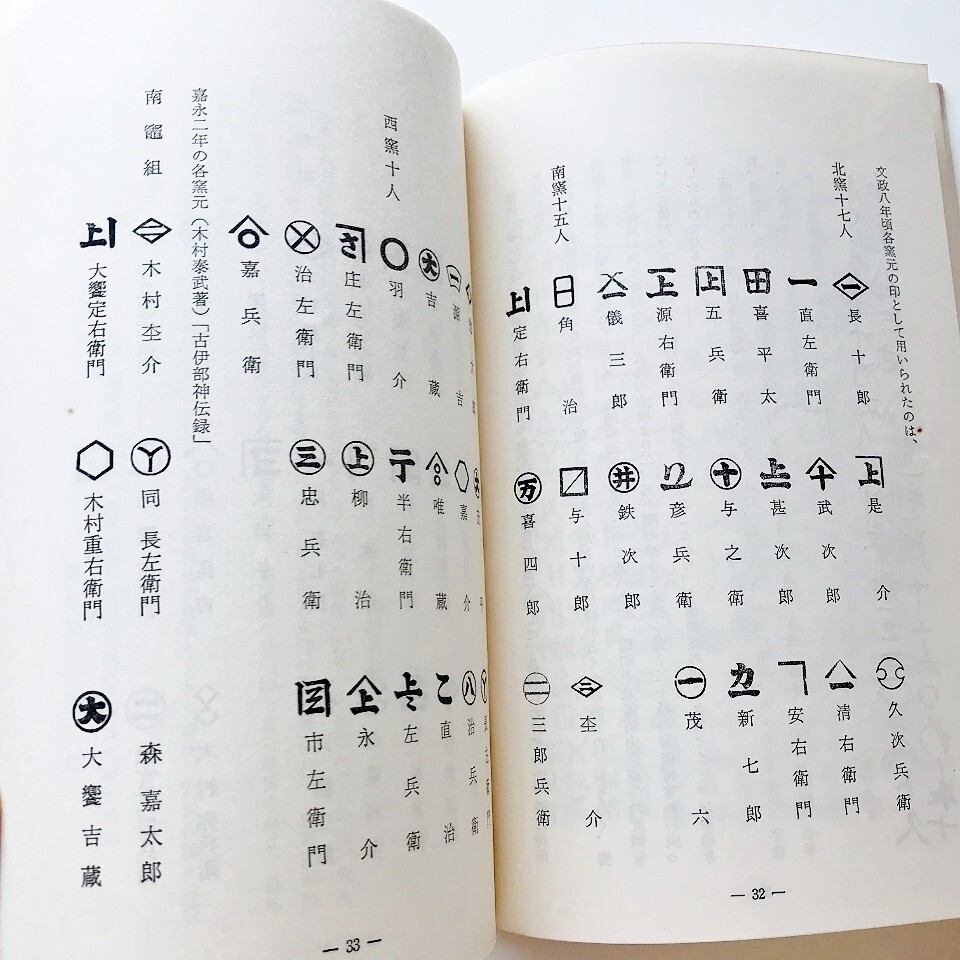 文政八年頃各窯元の印として用いられたのは、
北窯十七人
長十郎
是介
久次兵衛
直左衛門
武次郎
清右衛門
喜平太
甚次郎
安右衛門
五兵衛
与之衛
新七郎
源右衛門
彦兵衛
茂六
儀三郎
鉄次郎
南窯十五人
角治
与十郎
杢介
定右衛門
喜四郎
三郎兵衛
— 32 —
武平
長左衛門
源吉
嘉介
治兵衛
吉蔵
唯蔵
直治
西窯十人
羽介
半右衛門
左兵衛
庄左衛門
柳治
永介
治左衛門
忠兵衛
市左衛門
嘉兵衛
嘉永二年の各窯元（木村泰武著）「古伊部神伝録」
南竈組
木村杢介
同長左衛門
森嘉太郎
大饗定右衛門
木村重右衛門
大饗吉蔵
— 33 —